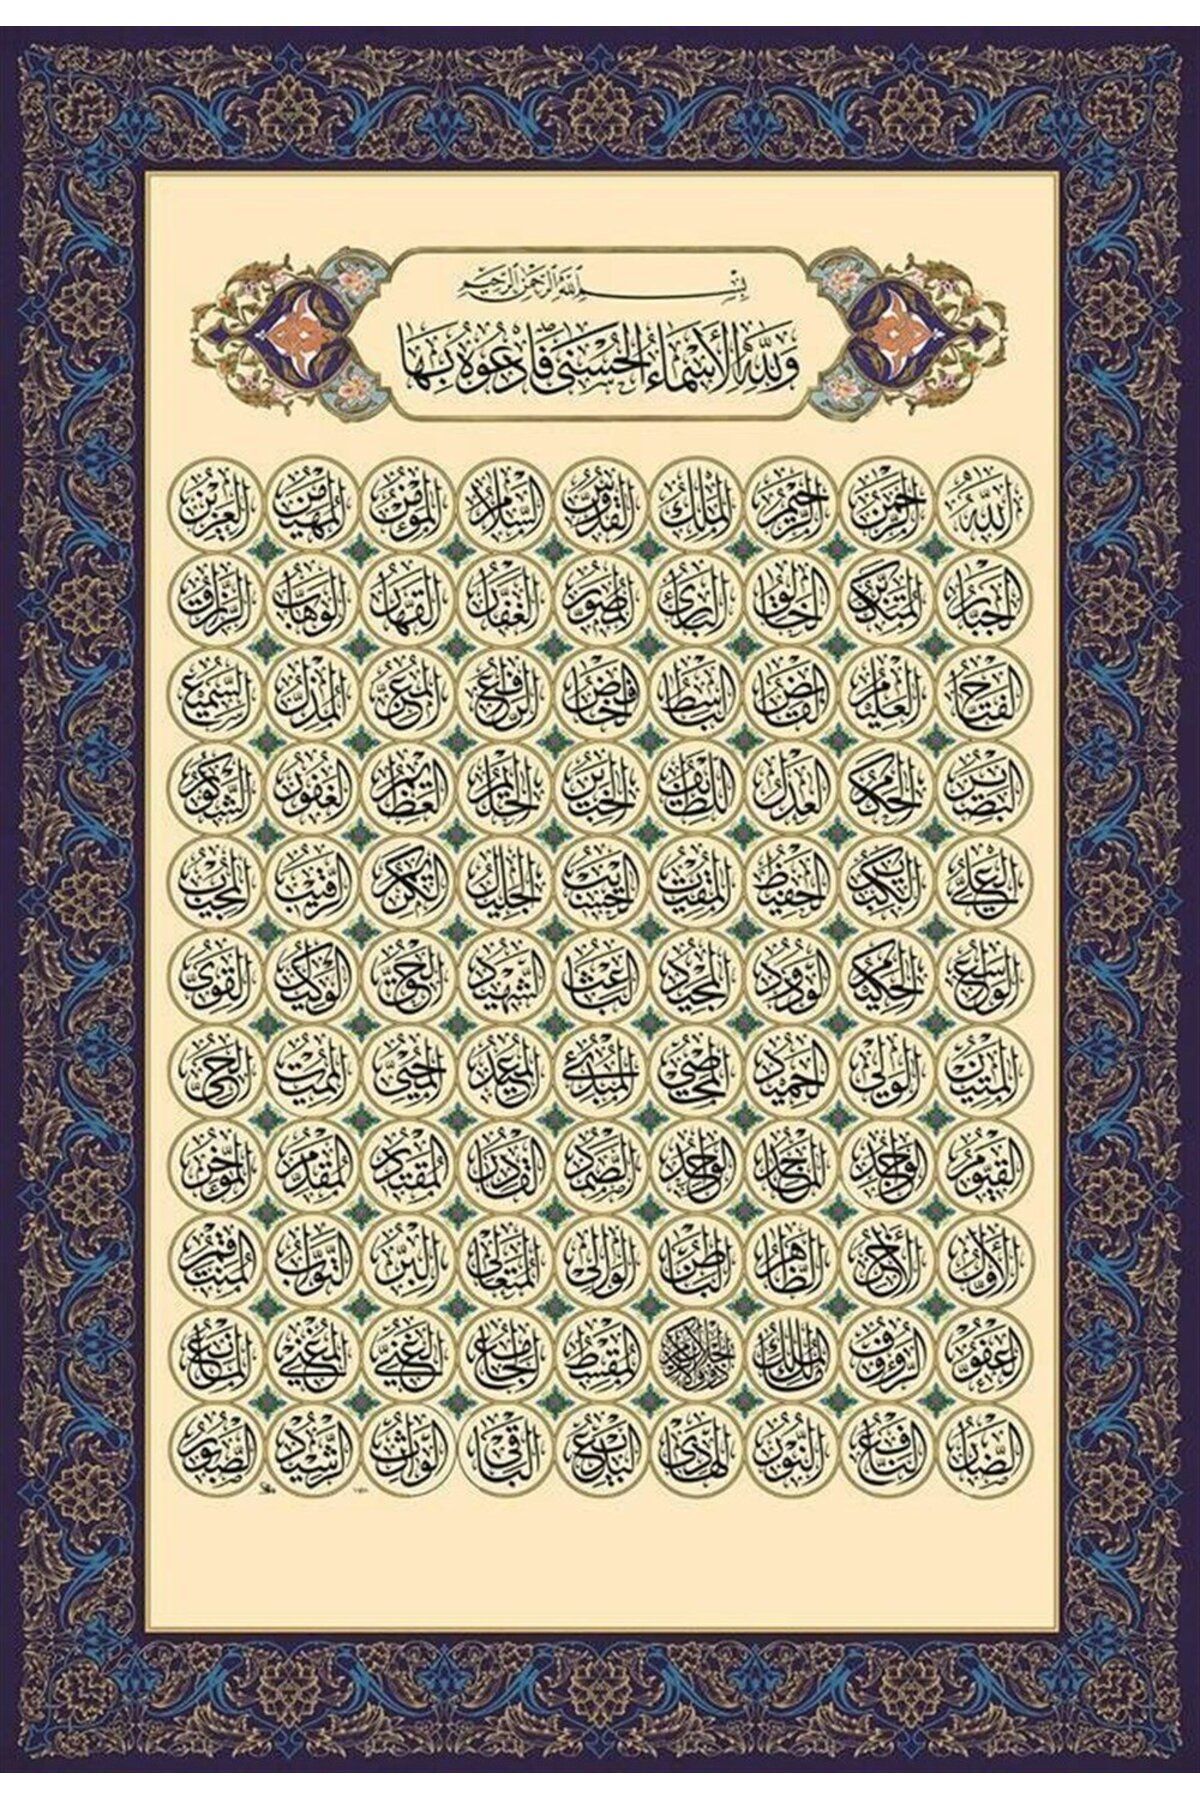 بسم الله الرحمن الرحيم
ولله الأسماء الحسنى فادعوه بها
الله الرحمن الرحيم الملك القدوس السلام المؤمن المهيمن العزيز
الجبار المتكبر الخالق البارئ المصور الغفار القهار الوهاب الرزاق
الفتاح العليم القابض الباسط الخافض الرافع المعز المذل السميع
البصير الحكم العدل اللطيف الخبير الحليم العظيم الغفور الشكور
العلي الكبير الحفيظ المقيت الحسيب الجليل الكريم الرقيب المجيب
الواسع الحكيم الودود المجيد الباعث الشهيد الحق الوكيل القوي
المتين الولي الحميد المحصي المبدئ المعيد المحيي المميت الحي
القيوم الواجد الماجد الواحد الصمد القادر المقتدر المقدم المؤخر
الأول الآخر الظاهر الباطن الوالي المتعالي البر التواب المنتقم
العفو الرؤوف مالك الملك ذو الجلال والإكرام المقسط الجامع الغني المغني المانع
الضار النافع النور الهادي البديع الباقي الوارث الرشيد الصبور